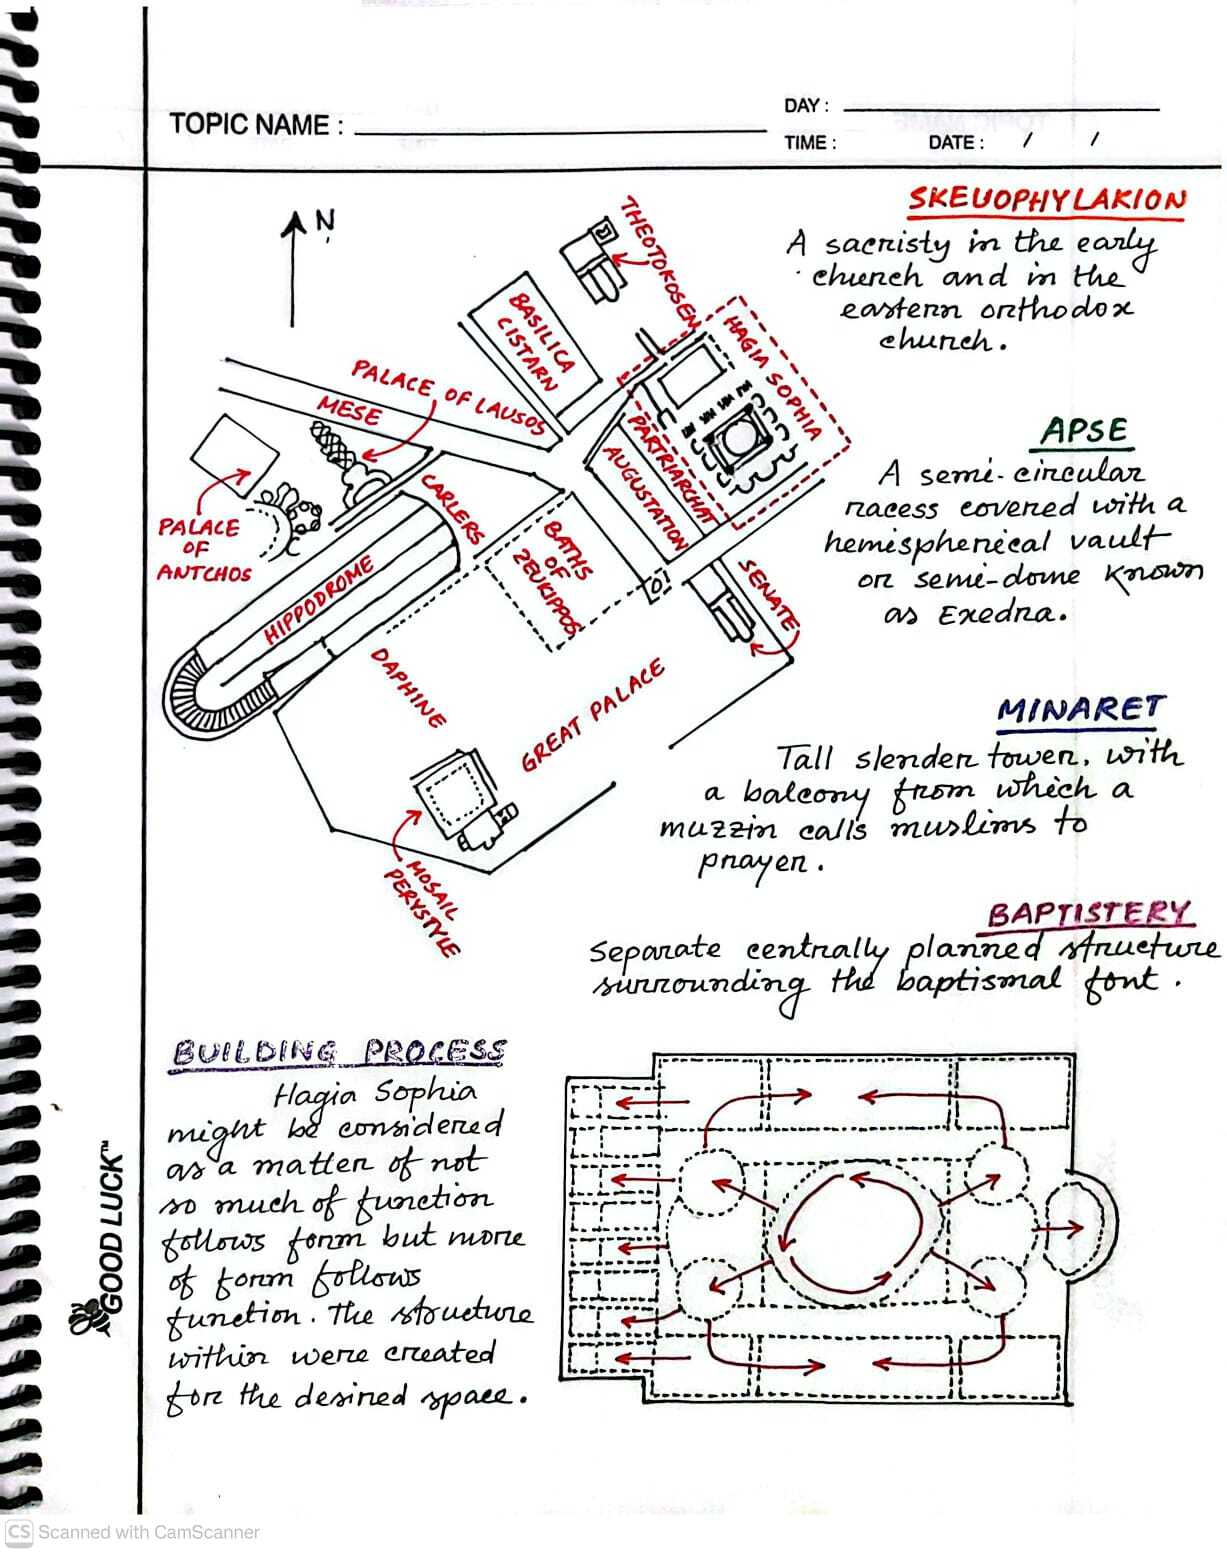 DAY :
TOPIC NAME :
TIME : DATE : / /
N
THEOTOKOSEN
BASILICA
CISTARN
HAGIA SOPHIA
PALACE OF LAUSOS
MESE
PARTRIARCHAT
AUGUSTATION
CARLERS
PALACE
OF
ANTCHOS
HIPPODROME
BATHS
OF
ZEUKIPPOS
SENATE
DAPHINE
GREAT PALACE
MOSAIL
PERYSTYLE
SKEUOPHYLAKION
A sacristy in the early
church and in the
eastern orthodox
church.
APSE
A semi-circular
racess covered with a
hemispherical vault
or semi-dome known
as Exedra.
MINARET
Tall slender tower, with
a balcony from which a
muzzin calls muslims to
prayer.
BAPTISTERY
Separate centrally planned structure
surrounding the baptismal font.
BUILDING PROCESS
Hagia Sophia
might be considered
as a matter of not
so much of function
follows form but more
of form follows
function. The structure
within were created
for the desired space.
GOOD LUCK™
CS Scanned with CamScanner